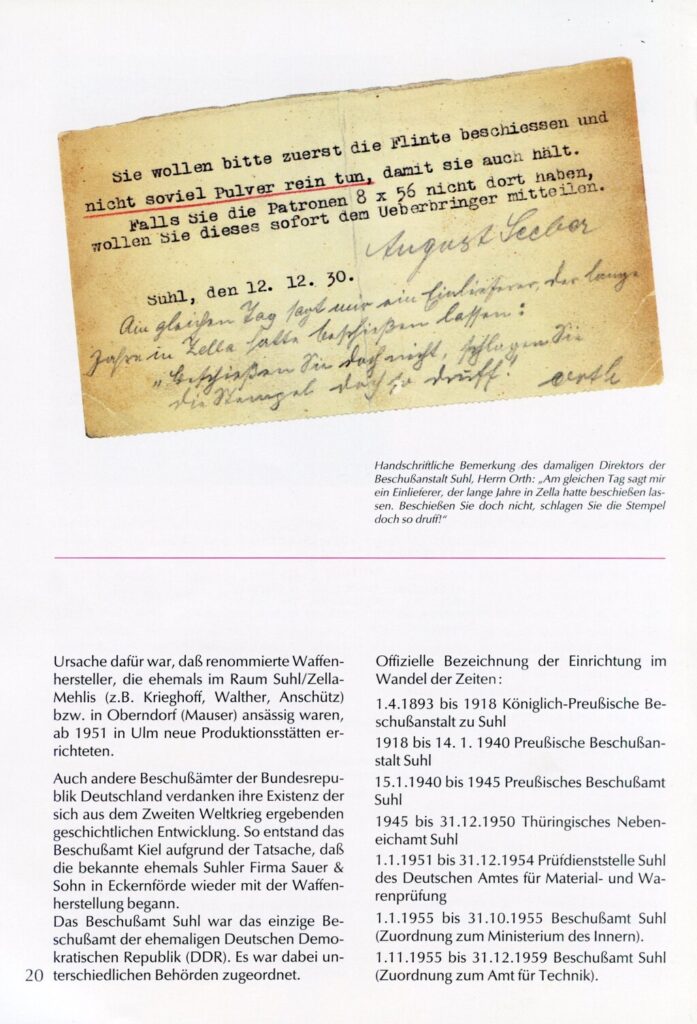 Sie wollen bitte zuerst die Flinte beschiessen und
nicht soviel Pulver rein tun, damit sie auch hält.
Falls Sie die Patronen 8 x 56 nicht dort haben,
wollen Sie dieses sofort dem Ueberbringer mitteilen.
August Seeber
Suhl, den 12. 12. 30.
Am gleichen Tag sagt mir ein Einlieferer, der lange
Jahre in Zella hatte beschießen lassen:
„Beschießen Sie doch nicht, schlagen Sie
die Stempel doch so druff!"
Orth
Handschriftliche Bemerkung des damaligen Direktors der
Beschußanstalt Suhl, Herrn Orth: „Am gleichen Tag sagt mir
ein Einlieferer, der lange Jahre in Zella hatte beschießen las-
sen. Beschießen Sie doch nicht, schlagen Sie die Stempel
doch so druff!“
Ursache dafür war, daß renommierte Waffen-
hersteller, die ehemals im Raum Suhl/Zella-
Mehlis (z.B. Krieghoff, Walther, Anschütz)
bzw. in Oberndorf (Mauser) ansässig waren,
ab 1951 in Ulm neue Produktionsstätten er-
richteten.
Auch andere Beschußämter der Bundesrepu-
blik Deutschland verdanken ihre Existenz der
sich aus dem Zweiten Weltkrieg ergebenden
geschichtlichen Entwicklung. So entstand das
Beschußamt Kiel aufgrund der Tatsache, daß
die bekannte ehemals Suhler Firma Sauer &
Sohn in Eckernförde wieder mit der Waffen-
herstellung begann.
Das Beschußamt Suhl war das einzige Be-
schußamt der ehemaligen Deutschen Demo-
kratischen Republik (DDR). Es war dabei un-
terschiedlichen Behörden zugeordnet.
Offizielle Bezeichnung der Einrichtung im
Wandel der Zeiten:
1.4.1893 bis 1918 Königlich-Preußische Be-
schußanstalt zu Suhl
1918 bis 14. 1. 1940 Preußische Beschußan-
stalt Suhl
15.1.1940 bis 1945 Preußisches Beschußamt
Suhl
1945 bis 31.12.1950 Thüringisches Neben-
eichamt Suhl
1.1.1951 bis 31.12.1954 Prüfdienststelle Suhl
des Deutschen Amtes für Material- und Wa-
renprüfung
1.1.1955 bis 31.10.1955 Beschußamt Suhl
(Zuordnung zum Ministerium des Innern).
1.11.1955 bis 31.12.1959 Beschußamt Suhl
(Zuordnung zum Amt für Technik).
20